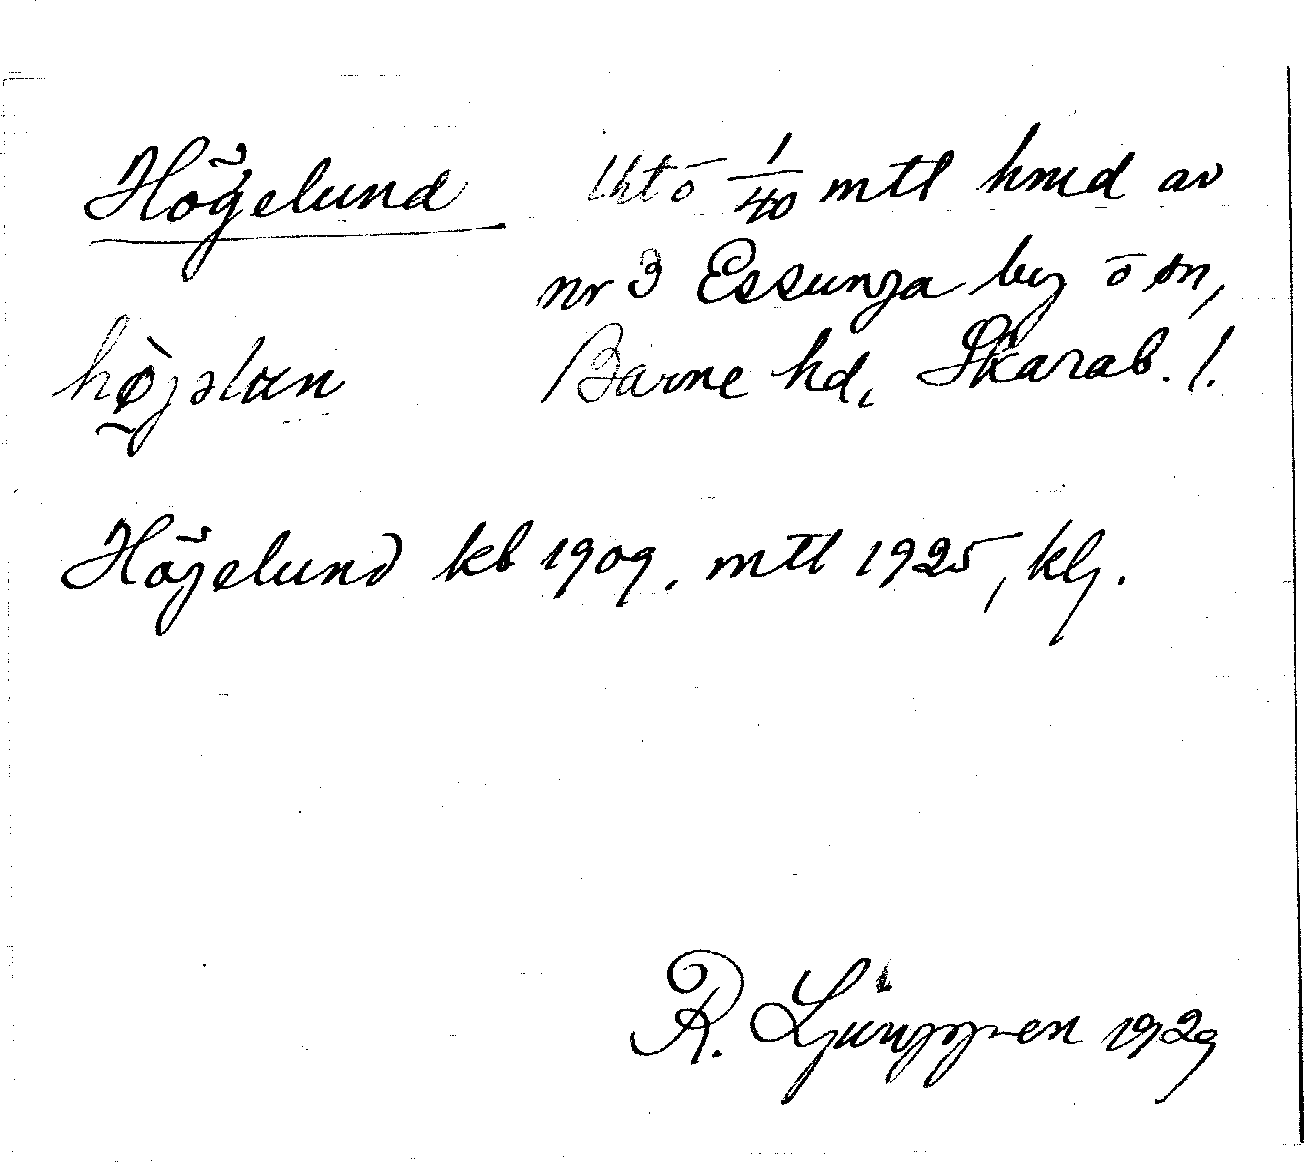 Högelund lht o 1/40 mtl hmd av
nr 3 Essunga by o sn,
Barne hd, Skarab. l.
Högelund kb 1909, mtl 1925, klj.
R. Ljunggren 1929